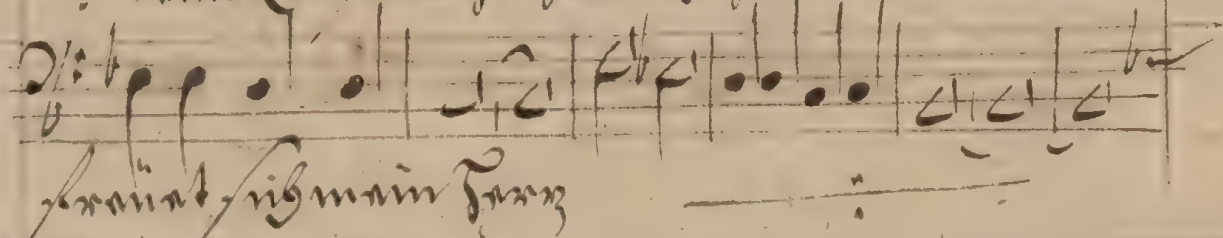 freüet sich mein Herz